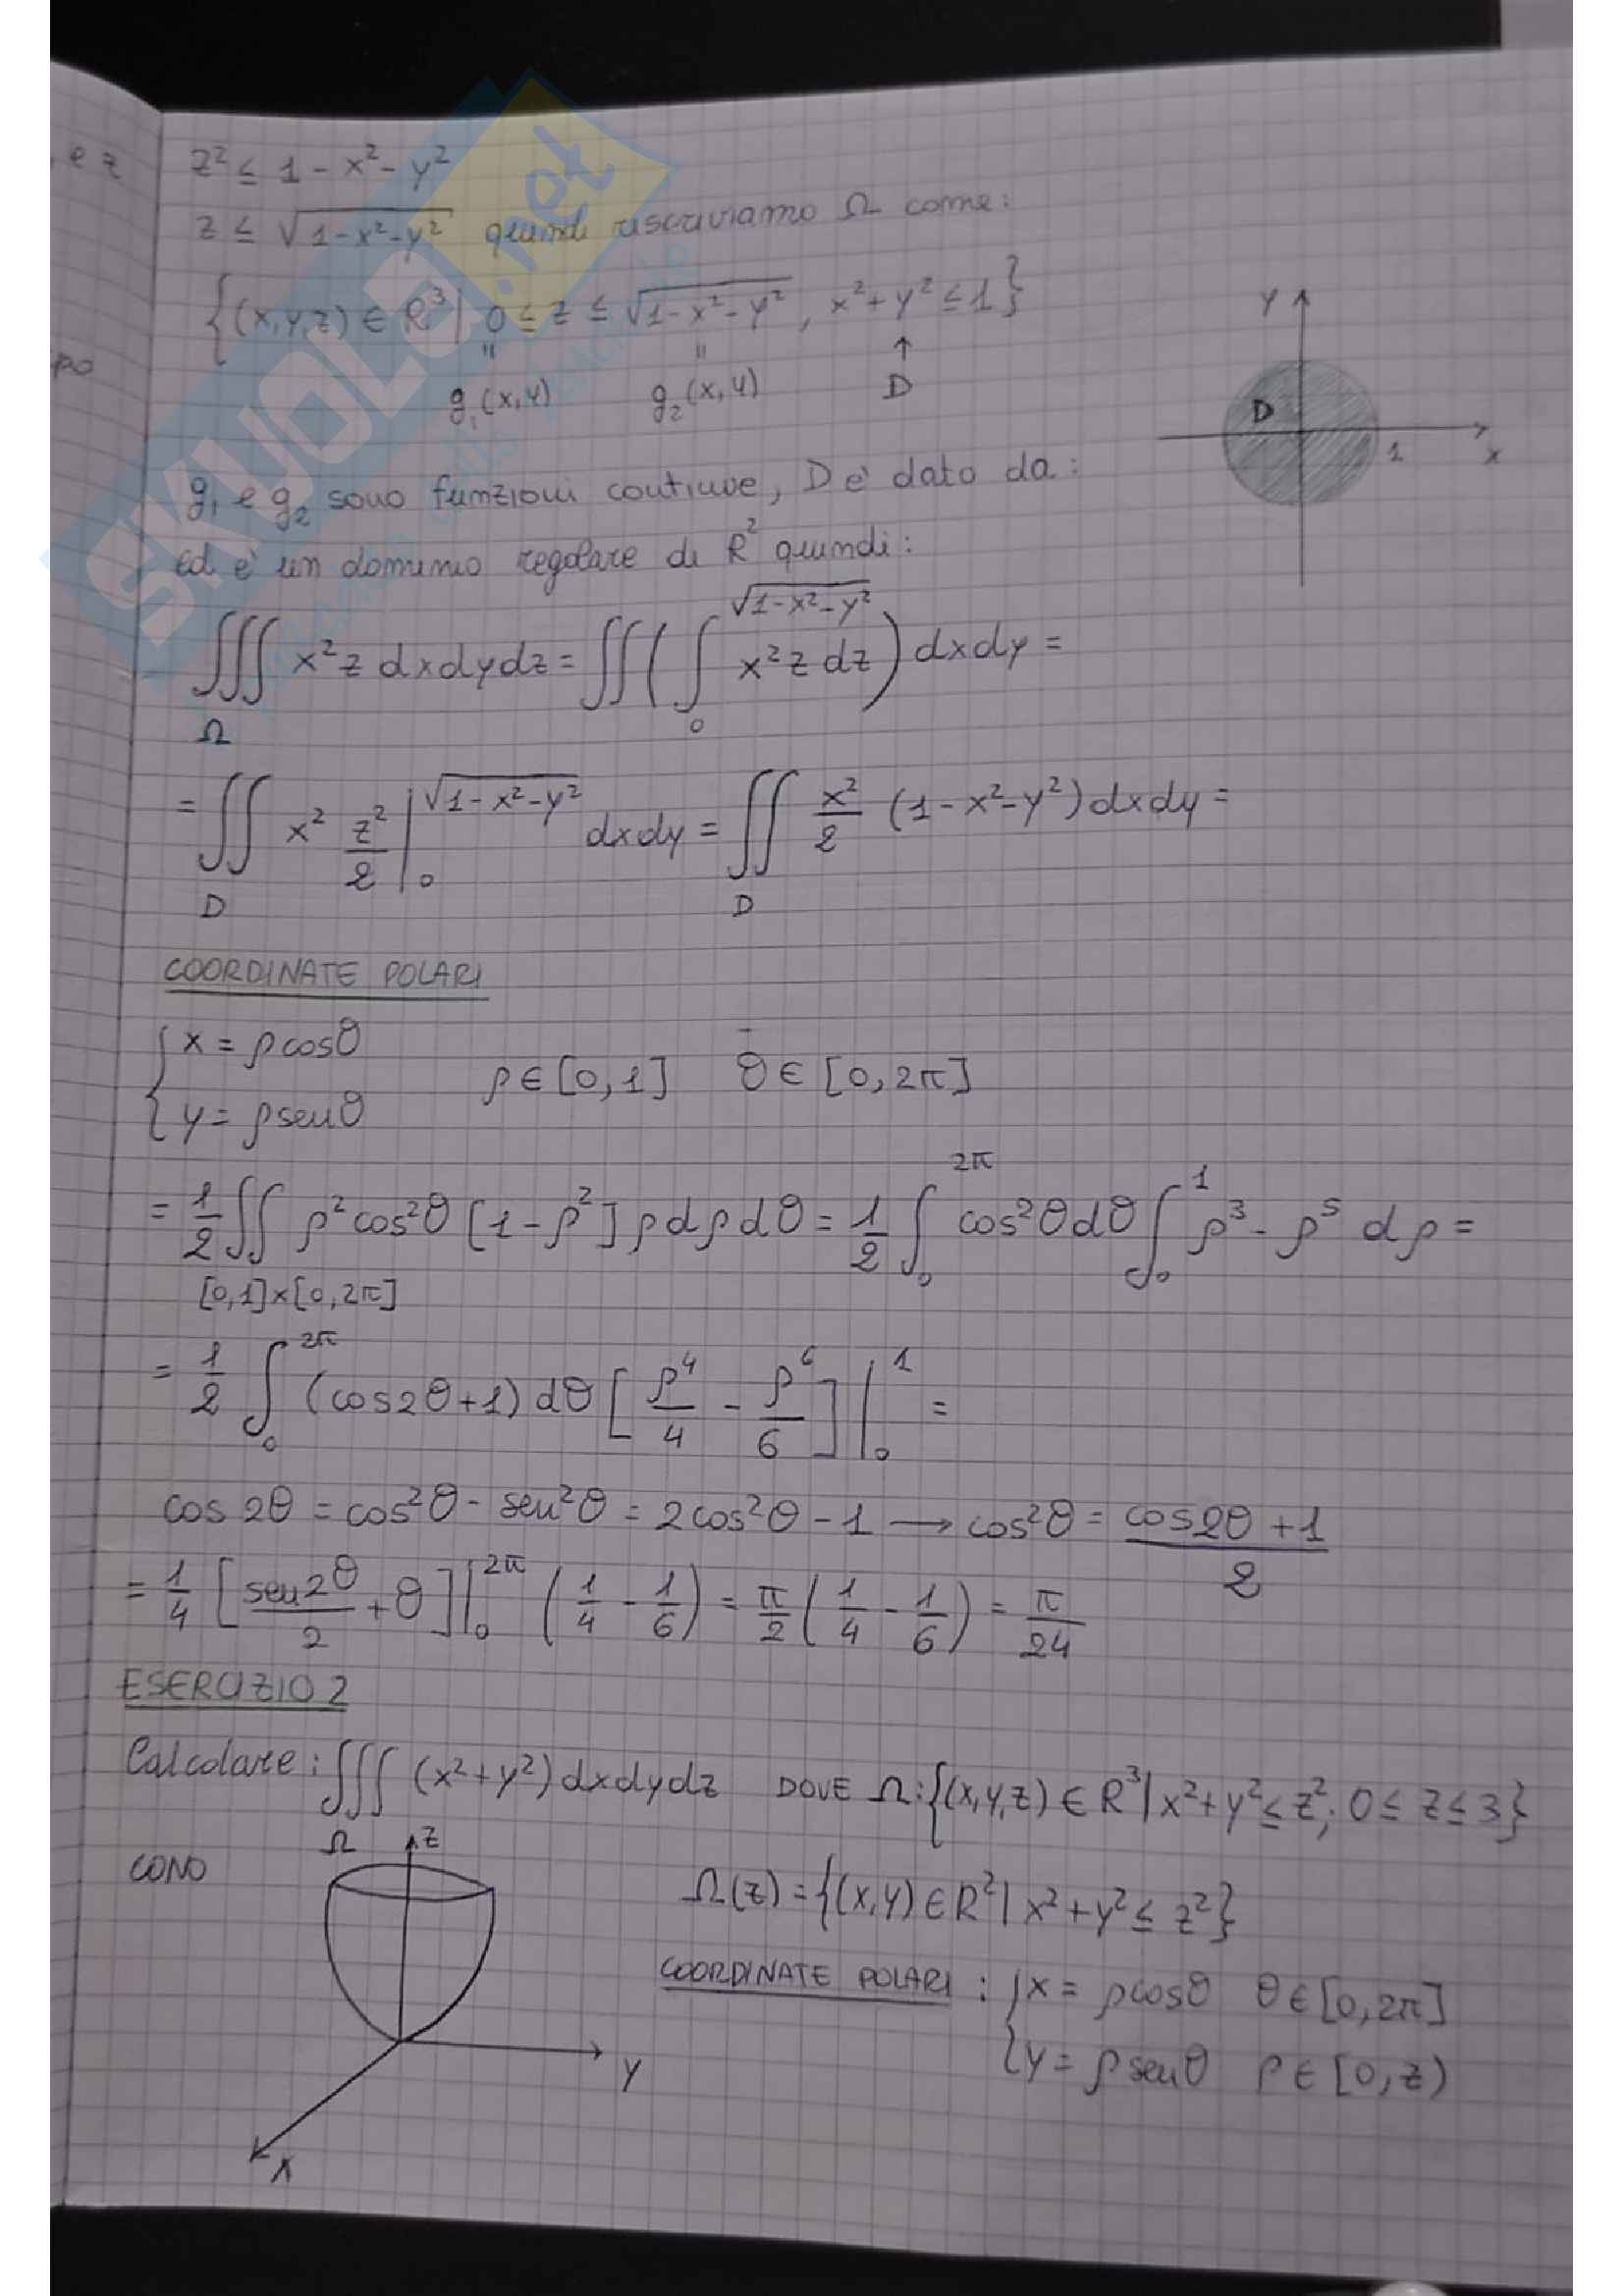 e z
z² ≤ 1 - x² - y²
z ≤ √(1-x²-y²) quindi riscriviamo Ω come:
{(x,y,z) ∈ R³ | 0 ≤ z ≤ √(1-x²-y²), x²+y² ≤ 1}
po
" " ↑
g₁(x,y) g₂(x,y) D
Y
D
1 x
g₁ e g₂ sono funzioni continue, D è dato da:
ed è un dominio regolare di R² quindi:
∭_Ω x²z dxdydz = ∬(∫_0^√(1-x²-y²) x²z dz) dxdy =
= ∬_D x² z²/2 |_0^√(1-x²-y²) dxdy = ∬_D x²/2 (1-x²-y²) dxdy =
COORDINATE POLARI
{x = ρcosθ
ρ∈[0,1] θ∈[0,2π]
{y = ρsenθ
= 1/2 ∬_[0,1]×[0,2π] ρ²cos²θ [1-ρ²] ρdρdθ = 1/2 ∫_0^2π cos²θdθ ∫_0^1 ρ³-ρ⁵ dρ =
= 1/2 ∫_0^2π (cos2θ+1) dθ [ρ⁴/4 - ρ⁶/6]|_0^1 =
cos 2θ = cos²θ - sen²θ = 2cos²θ - 1 → cos²θ = (cos2θ+1)/2
= 1/4 [sen2θ/2 + θ]|_0^2π (1/4 - 1/6) = π/2 (1/4 - 1/6) = π/24
ESERCIZIO 2
Calcolare: ∭_Ω (x²+y²) dxdydz DOVE Ω:{(x,y,z) ∈ R³ | x²+y² ≤ z²; 0 ≤ z ≤ 3}
CONO
z
Ω(z) = {(x,y) ∈ R² | x²+y² ≤ z²}
COORDINATE POLARI: {x = ρcosθ θ∈[0,2π]
{y = ρsenθ ρ∈[0,z)
Y
X
SKUOLA.net